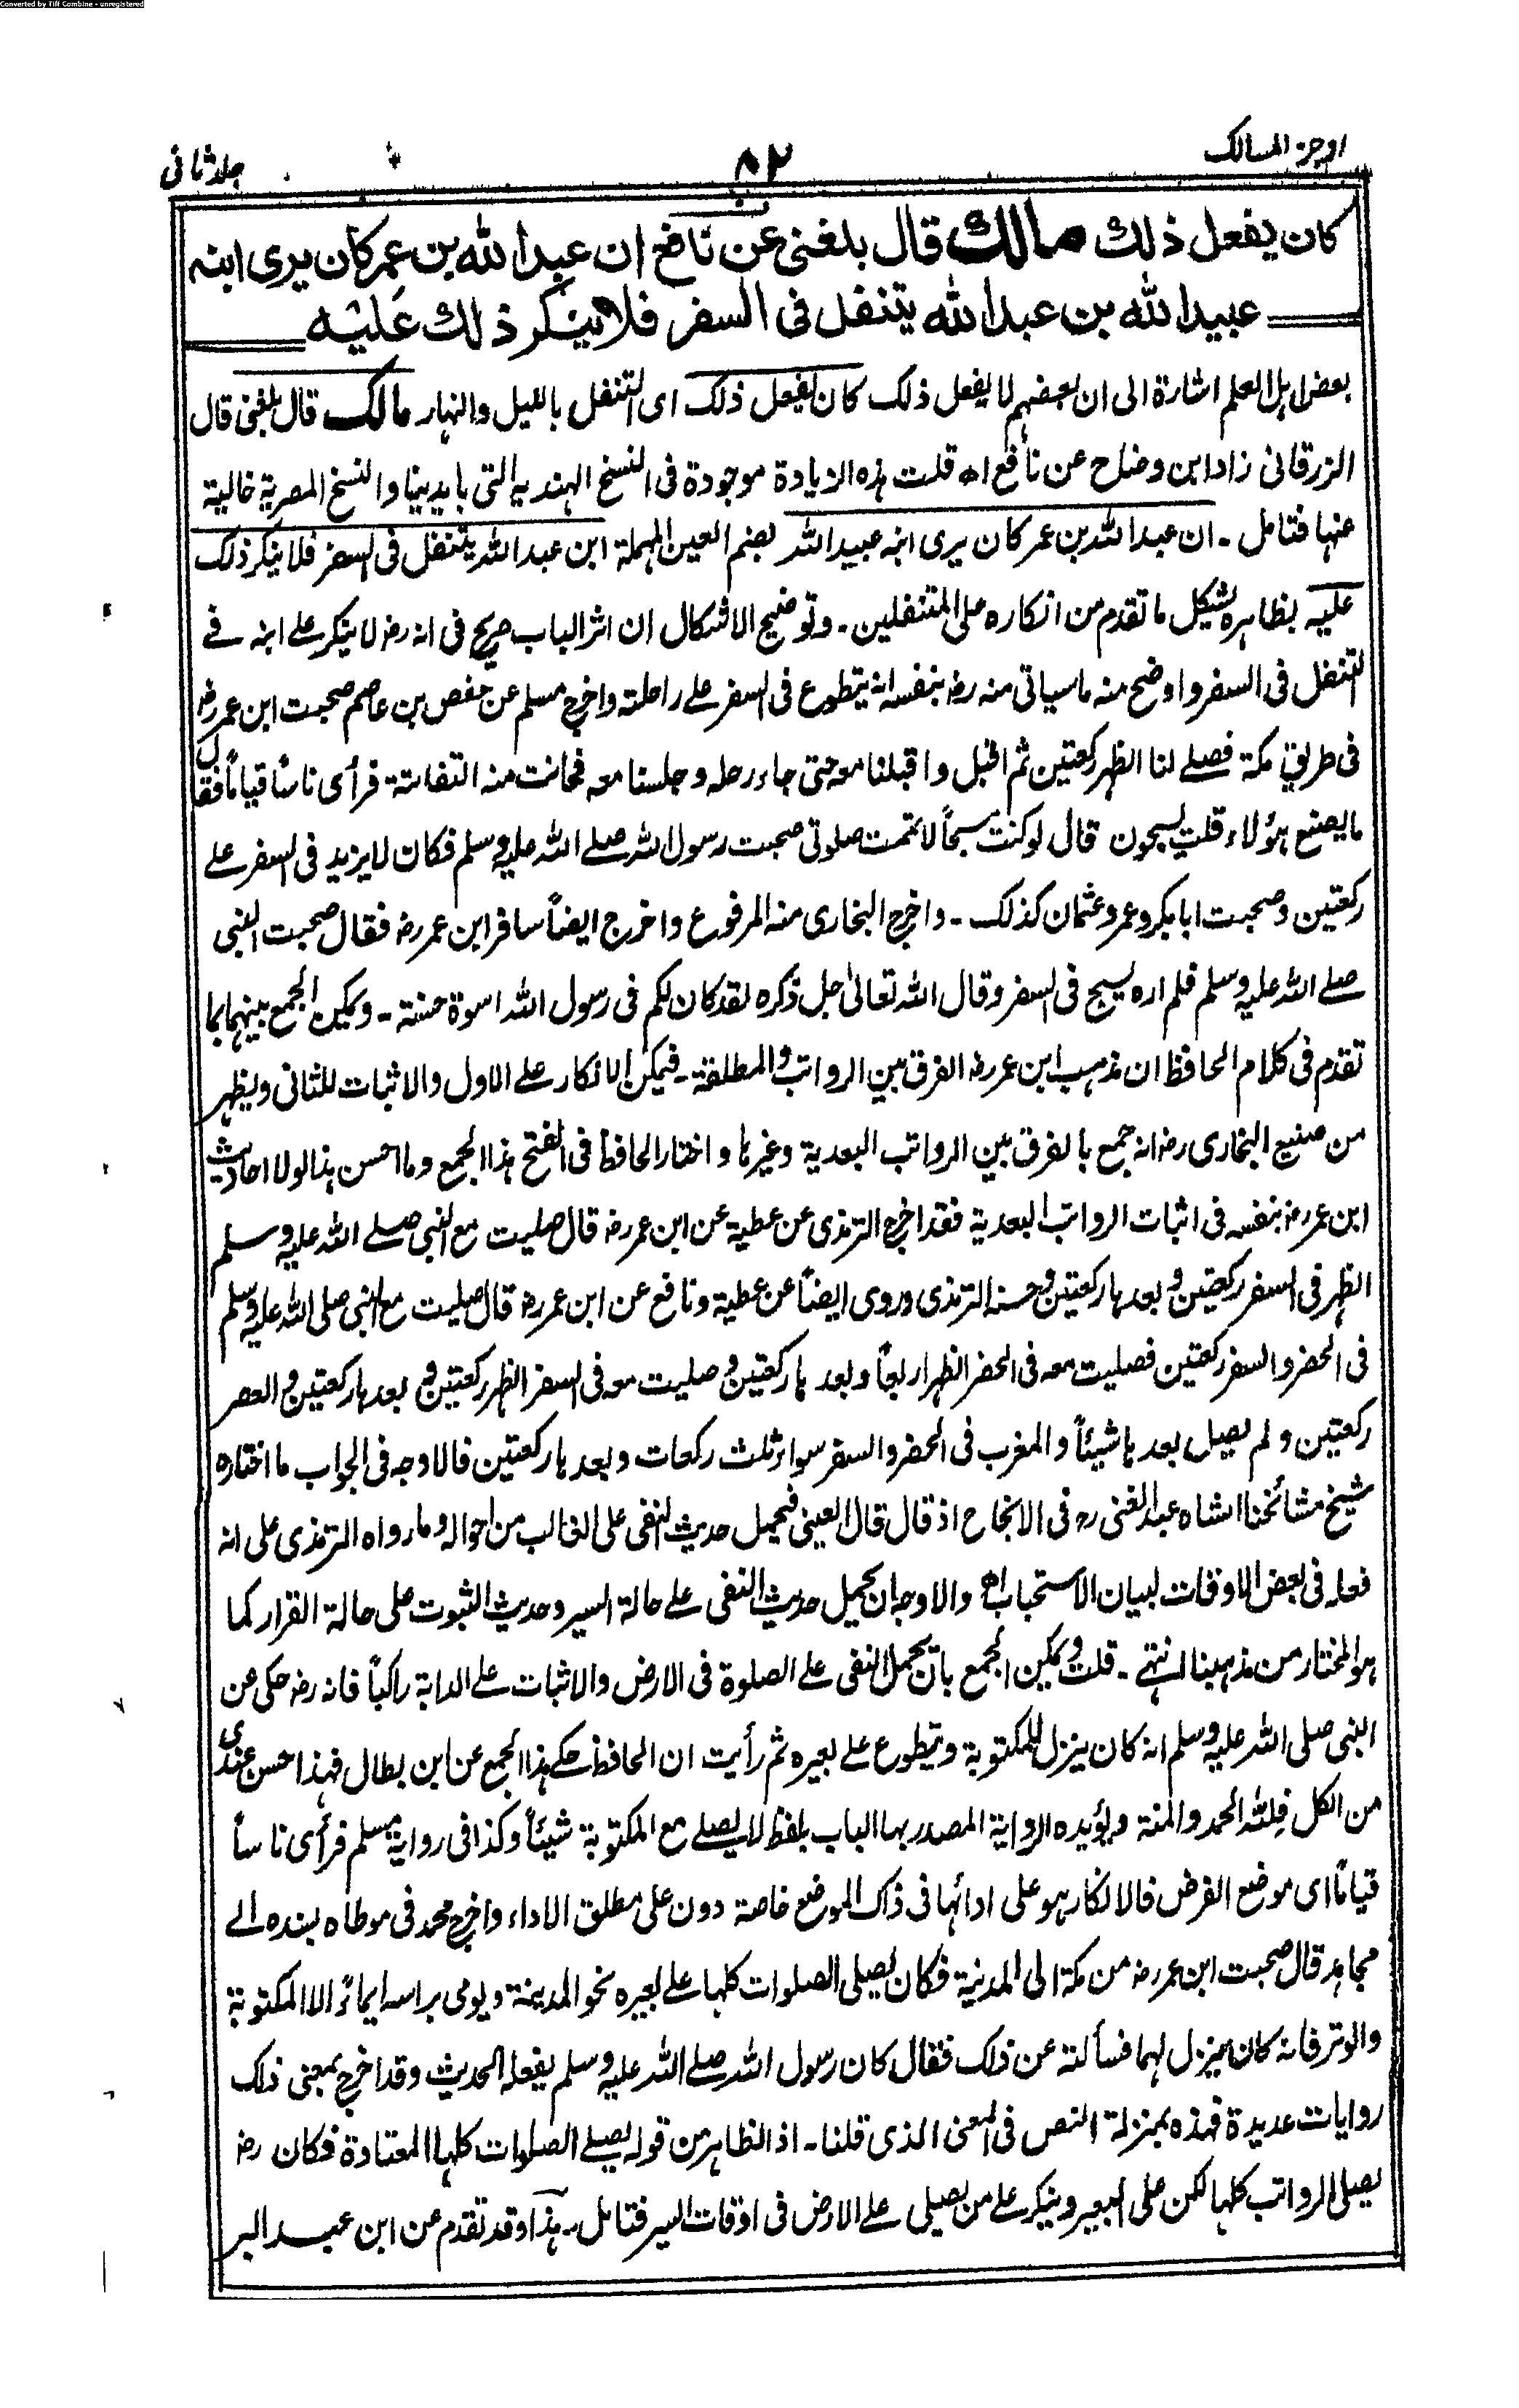 Converted by Tiff Combine - unregistered
اوجز المسالك ۸۲ جلد ثانى
كان يفعل ذلك مالك قال بلغنى عن نافع ان عبد الله بن عمر كان يرى ابنه
عبيد الله بن عبد الله يتنفل فى السفر فلا ينكر ذلك عليه
بعض اہل العلم اشارة الى ان بعضہم لا يفعل ذلك كان يفعل ذلك اى التنفل بالليل والنہار مالك قال بلغنى قال
الزرقانى زاد ابن وضاح عن نافع اھ قلت ہذه الزيادة موجودة فى النسخ الہنديہ التى بايدينا والنسخ المصرية خالية
عنہا فتامل ـ ان عبد الله بن عمر كان يرى ابنہ عبيد الله بضم العين المہملة ابن عبد الله يتنفل فى السفر فلا ينكر ذلك
عليہ بظاہره يشكل ما تقدم من انكاره على المتنفلين ـ وتوضيح الاشكال ان اثر الباب صريح فى انہ رضہ لا ينكر على ابنہ فے
التنفل فى السفر واوضح منہ ما سياتى منہ رضہ بنفسہ انہ يتطوع فى السفر علے راحلتہ واخرج مسلم عن حفص بن عاصم صحبت ابن عمر رضہ
فى طريق مكة فصلے لنا الظہر ركعتين ثم اقبل واقبلنا معہ حتى جاء رحلہ وجلسنا معہ فحانت منہ التفاتة فرأى ناساً قياماً فقال
ما يصنع ہؤلاء قلت يسبحون قال لو كنت مسبحاً لاتممت صلوتى صحبت رسول الله صلے الله عليہ وسلم فكان لا يزيد فى السفر علے
ركعتين وصحبت ابا بكر وعمر وعثمان كذلك ـ واخرج البخارى منہ المرفوع واخرج ايضاً سافر ابن عمر رضہ فقال صحبت النبى
صلے الله عليہ وسلم فلم اره يسبح فى السفر وقال الله تعالىٰ جل ذكره لقد كان لكم فى رسول الله اسوة حسنة ـ ويمكن الجمع بينہما بما
تقدم فى كلام الحافظ ان مذہب ابن عمر رضہ الفرق بين الرواتب والمطلقة ـ فيمكن الانكار علے الاول والاثبات للثانى ويظہر
من صنيع البخارى رضہ انہ جمع بالفرق بين الرواتب البعدية وغيرہا واختار الحافظ فى الفتح ہذا الجمع وما احسن ہذا لولا احاديث
ابن عمر رضہ بنفسہ فى اثبات الرواتب البعدية فقد اخرج الترمذى عن عطية عن ابن عمر رضہ قال صليت مع النبى صلے الله عليہ وسلم
الظہر فى السفر ركعتين وبعدہا ركعتين وحسنہ الترمذى وروى ايضاً عن عطية ونافع عن ابن عمر رضہ قال صليت مع النبى صلى الله عليہ وسلم
فى الحضر والسفر ركعتين فصليت معہ فى الحضر الظہر اربعاً وبعدہا ركعتين وصليت معہ فى السفر الظہر ركعتين وبعدہا ركعتين والعصر
ركعتين ولم يصل بعدہا شيئاً والمغرب فى الحضر والسفر سواء ثلث ركعات وبعدہا ركعتين فالاوجہ فى الجواب ما اختاره
شيخ مشائخنا الشاه عبد الغنى رہ فى الانجاح اذ قال قال العينى فيحمل حديث النفى على الغالب من احوالہ وما رواه الترمذى على انہ
فعلہ فى بعض الاوقات لبيان الاستحباب اھ والاوجہ ان يحمل حديث النفى علے حالة السير وحديث الثبوت على حالة القرار كما
ہو المختار من مذہبنا انتہى ـ قلت ويمكن الجمع بان يحمل النفى علے الصلوة فى الارض والاثبات علے الدابة راكباً فانہ رضہ حكى عن
النبى صلى الله عليہ وسلم انہ كان ينزل للمكتوبة ويتطوع علے بعيره ثم رأيت ان الحافظ حكے ہذا الجمع عن ابن بطال فہذا احسن عندى
من الكل فللہ الحمد والمنة ويؤيده الرواية المصدر بہا الباب بلفظ لا يصلے مع المكتوبة شيئاً وكذا فى رواية مسلم فرأى ناساً
قياماً اى موضع الفرض فالانكار ہو على ادائہا فى ذاك الموضع خاصة دون على مطلق الاداء واخرج محمد فى موطاه بسنده الے
مجاہد قال صحبت ابن عمر رضہ من مكة الى المدينة فكان يصلى الصلوات كلہا علے بعيره نحو المدينة ويومى براسہ ايماءً الا المكتوبة
والوتر فانہ كان ينزل لہما فسألتہ عن ذلك فقال كان رسول الله صلے الله عليہ وسلم يفعلہ الحديث وقد اخرج بمعنى ذلك
روايات عديدة فہذه بمنزلة النص فى المعنى الذى قلنا ـ اذ الظاہر من قولہ يصلے الصلوات كلہا المعتادة فكان رضہ
يصلى الرواتب كلہا لكن على البعير وينكر علے من يصلى علے الارض فى اوقات السير فتامل ـ ہذا وقد تقدم عن ابن عبد البر